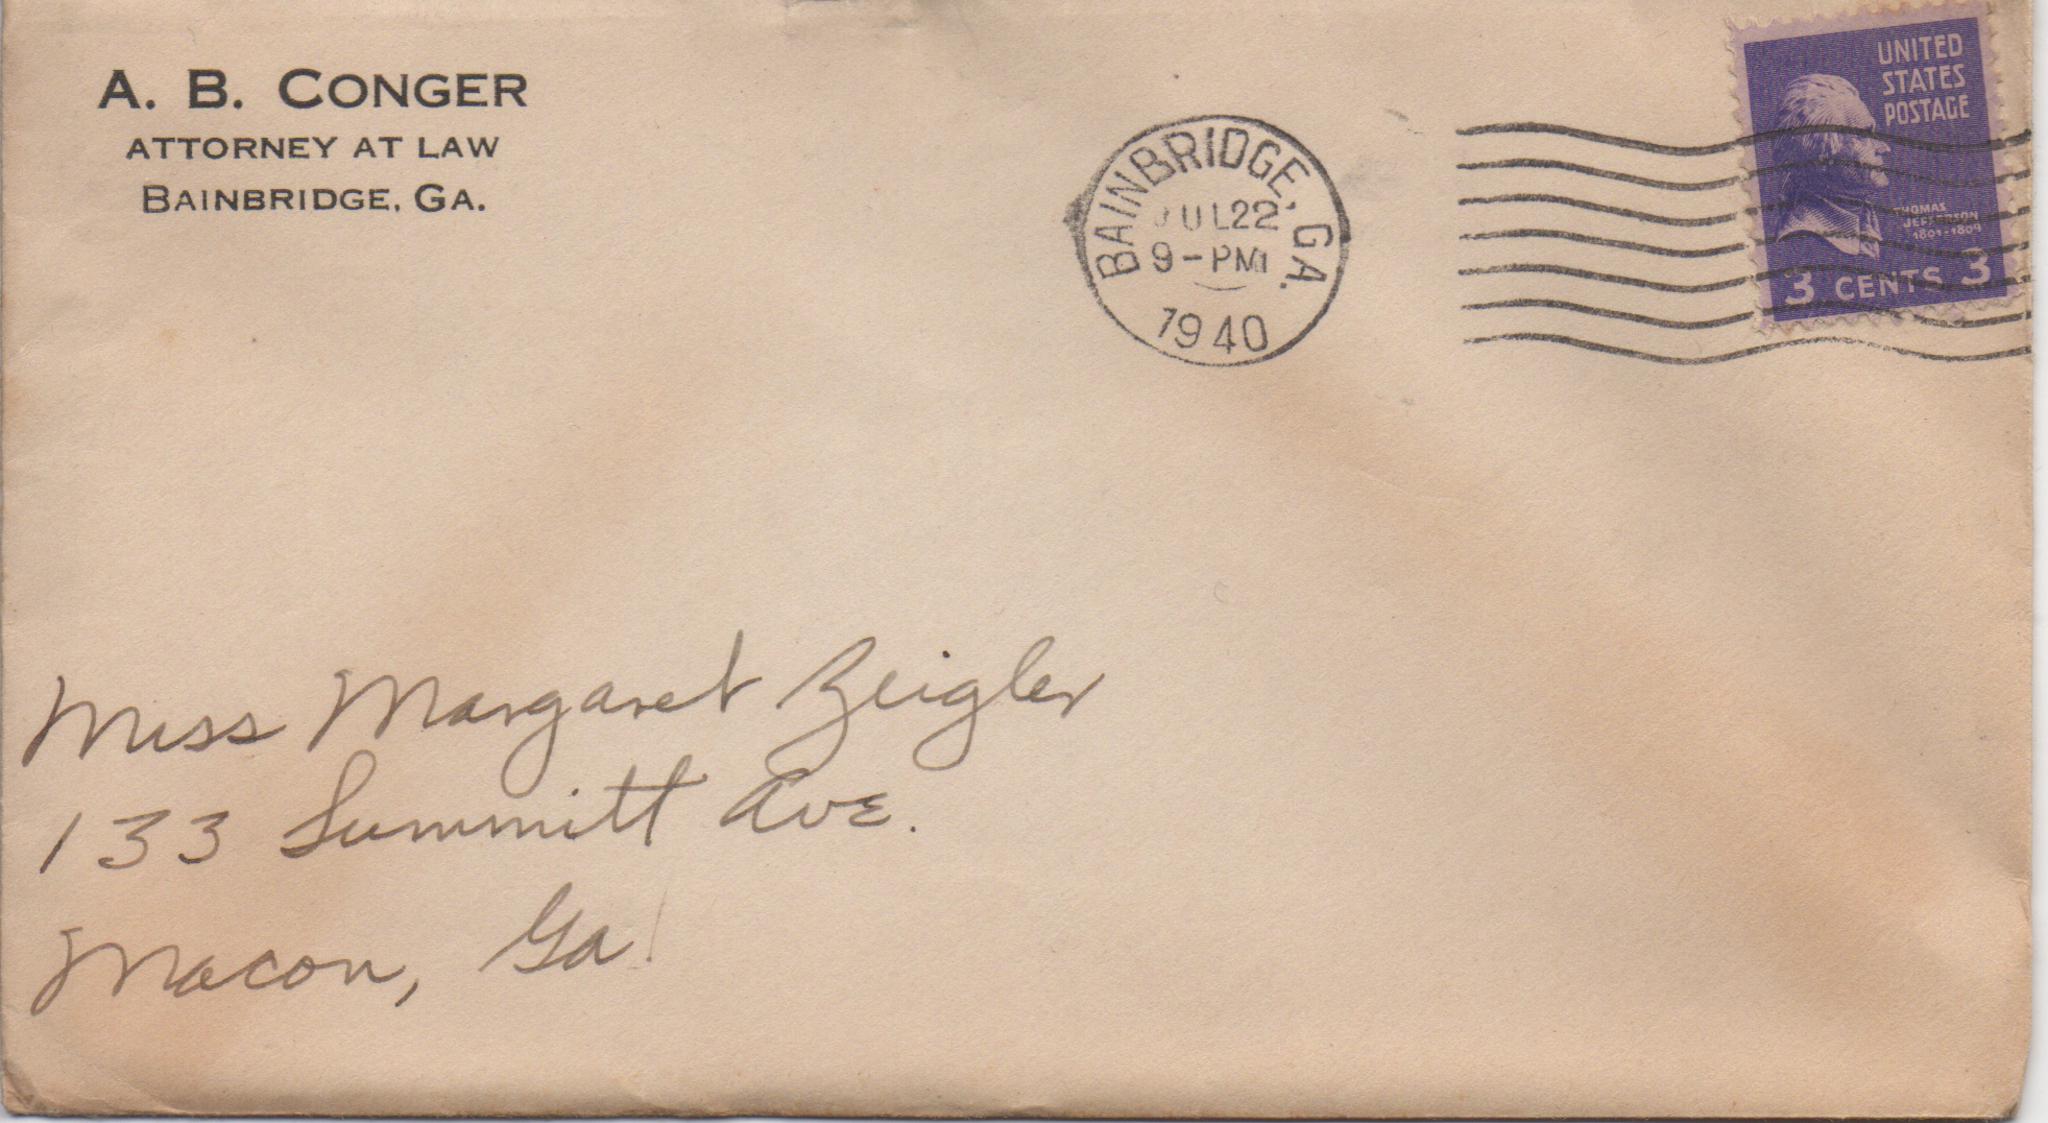 A. B. CONGER
ATTORNEY AT LAW
BAINBRIDGE, GA.
BAINBRIDGE, GA.
JUL 22
9-PM
1940
UNITED
STATES
POSTAGE
THOMAS
JEFFERSON
1801-1809
3 CENTS 3
Miss Margaret Zeigler
133 Summitt Ave.
Macon, Ga.